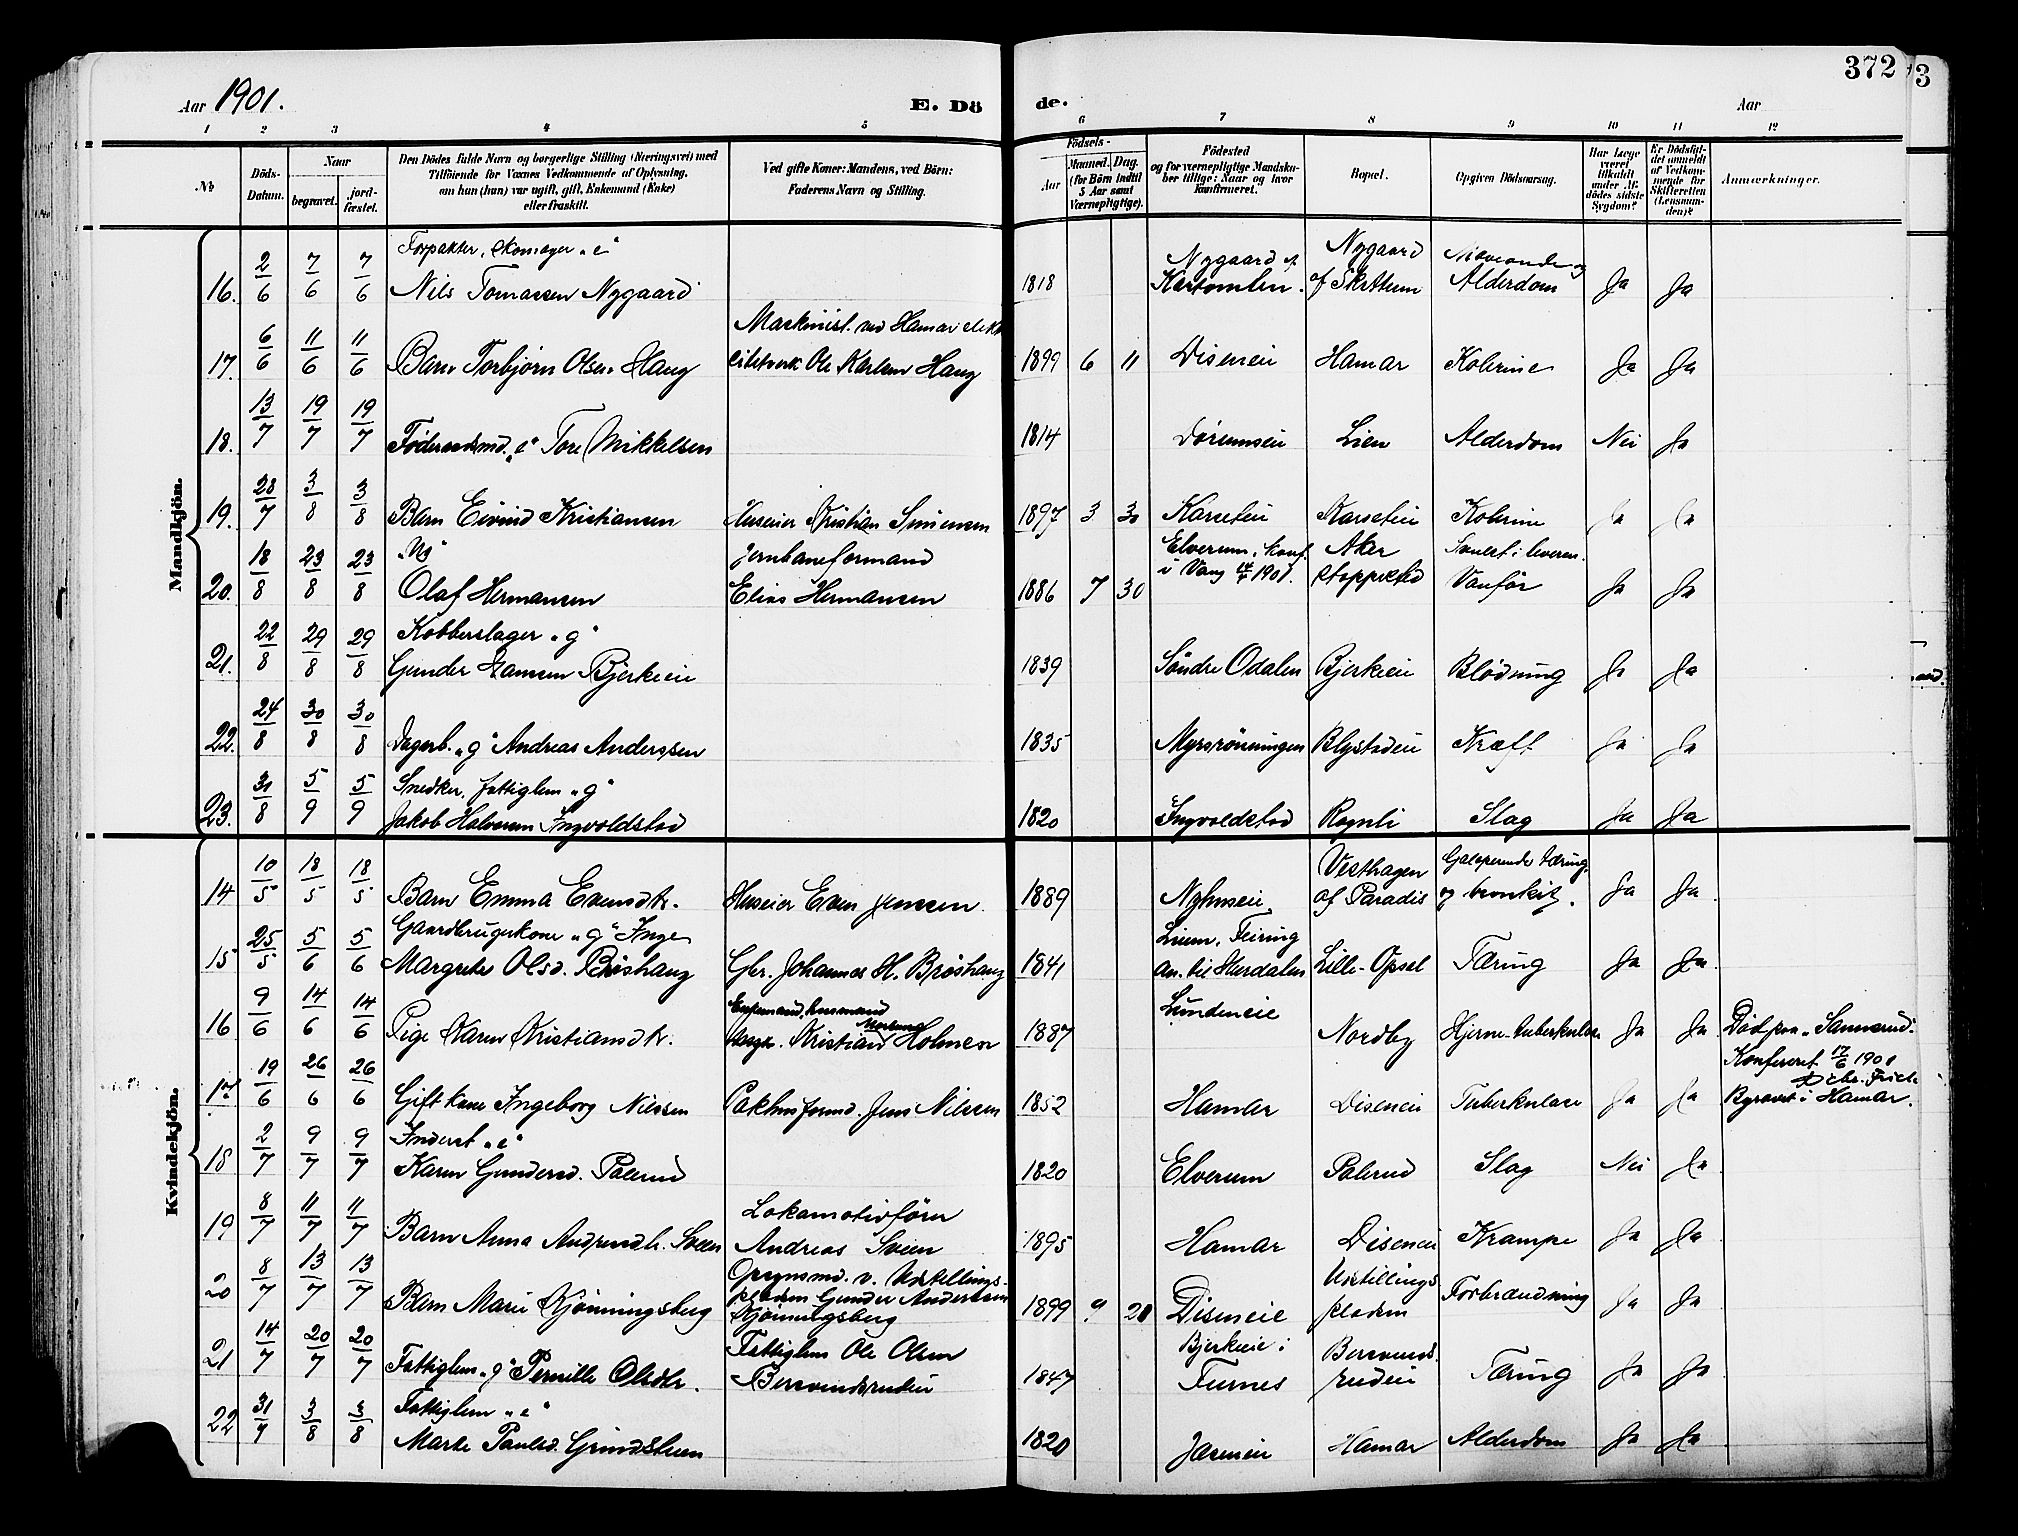 372
3
Aar 1901.
E. Dö
de.
Aar
1 2 3 4 5 6 7 8 9 10 11 12
No
Döds-Datum.
Naar
begravet.
jord-fæstet.
Den Dödes fulde Navn og borgerlige Stilling (Næringsvei) med
Tilföiende for Voxnes Vedkommende af Oplysning,
om han (hun) var ugift, gift, Enkemand (Enke)
eller fraskilt.
Ved gifte Koner: Mandens, ved Börn:
Faderens Navn og Stilling.
Födsels-
Aar
Maaned. Dag.
(for Börn indtil
5 Aar samt
Værnepligtige).
Födested
og for værnepligtige Mandskaber tillige: Naar og hvor
konfirmeret.
Bopæl.
Opgiven Dödsaarsag.
Har Læge
været
tilkaldt
under Afdödes sidste
Sygdom?
Er Dödsfaldet anmeldt
af Vedkommende for
Skifteretten
(Lensmanden)?
Anmærkninger.
Mandkjön.
Forpakter, skomager „e"
16. 2/6 7/6 7/6 Nils Tomassen Nygaard 1818 Nygaard af Nygaard af Skattum Alderdom Ja Ja
Maskinist ved Hamar
17. 6/6 11/6 11/6 Barn Torbjørn Olsen Haug Ole Karlsen Haug 1899 6 11 Diseneie Hamar Kolerine Ja Ja
18. 13/7 19/7 19/7 Føderaadsmd. „e" Tore Mikkelsen 1814 Lien Alderdom Nei Ja
19. 28/7 3/8 3/8 Barn Eivind Kristiansen Huseier Kristian Simensen 1897 3 30 Karseteie Karseteie Kolerine Ja Ja
„Ug" Jernbaneformand Elverum, konf. Aker
20. 18/8 23/8 23/8 Olaf Hermansen Elias Hermansen 1886 7 30 i Vang 1901. stoppested Vanför Ja Ja
Kobberslager „g"
21. 22/8 29/8 29/8 Gunder Hansen Bjerkeeie 1839 Søndre Odalen Bjerkeeie Blødning Ja Ja
22. 24/8 30/8 30/8 Dagarb. „g" Andreas Anderssen 1835 Myrsrönningen Blystadeie Kræft Ja Ja
Snedker, fattiglem „g"
23. 31/8 5/9 5/9 Jakob Halvorsen Ingvoldstad 1820 Ingvoldstad Rognli Slag Ja Ja
Kvindekjön.
14 10/5 18/5 18/5 Barn Emma Evensdtr. Huseier Even Jenssen 1889 Nyhuseie Vesthagen af Paradis Galoperende tæring og bronkit. Ja Ja
Gaardbrugerkone „g" Inge
15 25/5 5/6 5/6 Margrete Olsd. Brøshaug Gbr. Johannes H. Brøshaug 1841 Feiring an. til Hurdalen Lille-Opsal Tæring Ja Ja
16 9/6 14/6 14/6 Pige Karen Kristiansdtr. Kristian Holmen 1887 Lundeneie Nordby Hjerne-tuberkulose Ja Ja Død paa „Sannerud".
Konfereret 17/6 1901
17 19/6 26/6 26/6 Gift kone Ingeborg Nilssen Pakhusformd. Jens Nilssen 1852 Hamar Diseneie Tuberkulose Ja Ja Begravet i Hamar.
Inderst „e"
18 2/7 9/7 9/7 Karen Gundersd. Palerud 1820 Elverum Palerud Slag Nei Ja
Lokomotivfører
19 8/7 11/7 11/7 Barn Anna Andreasdtr. Sveen Andreas Sveen 1895 Hamar Diseneie Krampe Ja Ja
Opsynsmd. v. Udstillings-
pladsen Gunder Anderssen
20 8/7 13/7 13/7 Barn Marie Kjönningsberg Kjönningsberg 1899 9 20 Diseneie Udstillings pladsen Forbrændning Ja Ja
Fattiglem Ole Olsen Bjerkeeie i
21 14/7 20/7 20/7 Fattiglem „g" Pernille Olsdtr. Bersvendsrudeie 1847 Furnes Bersvends-rudeie Tæring Ja Ja
Fattiglem „e"
22 31/7 3/8 3/8 Marte Paulsd. Grindstuen 1820 Hamar Alderdom Ja Ja